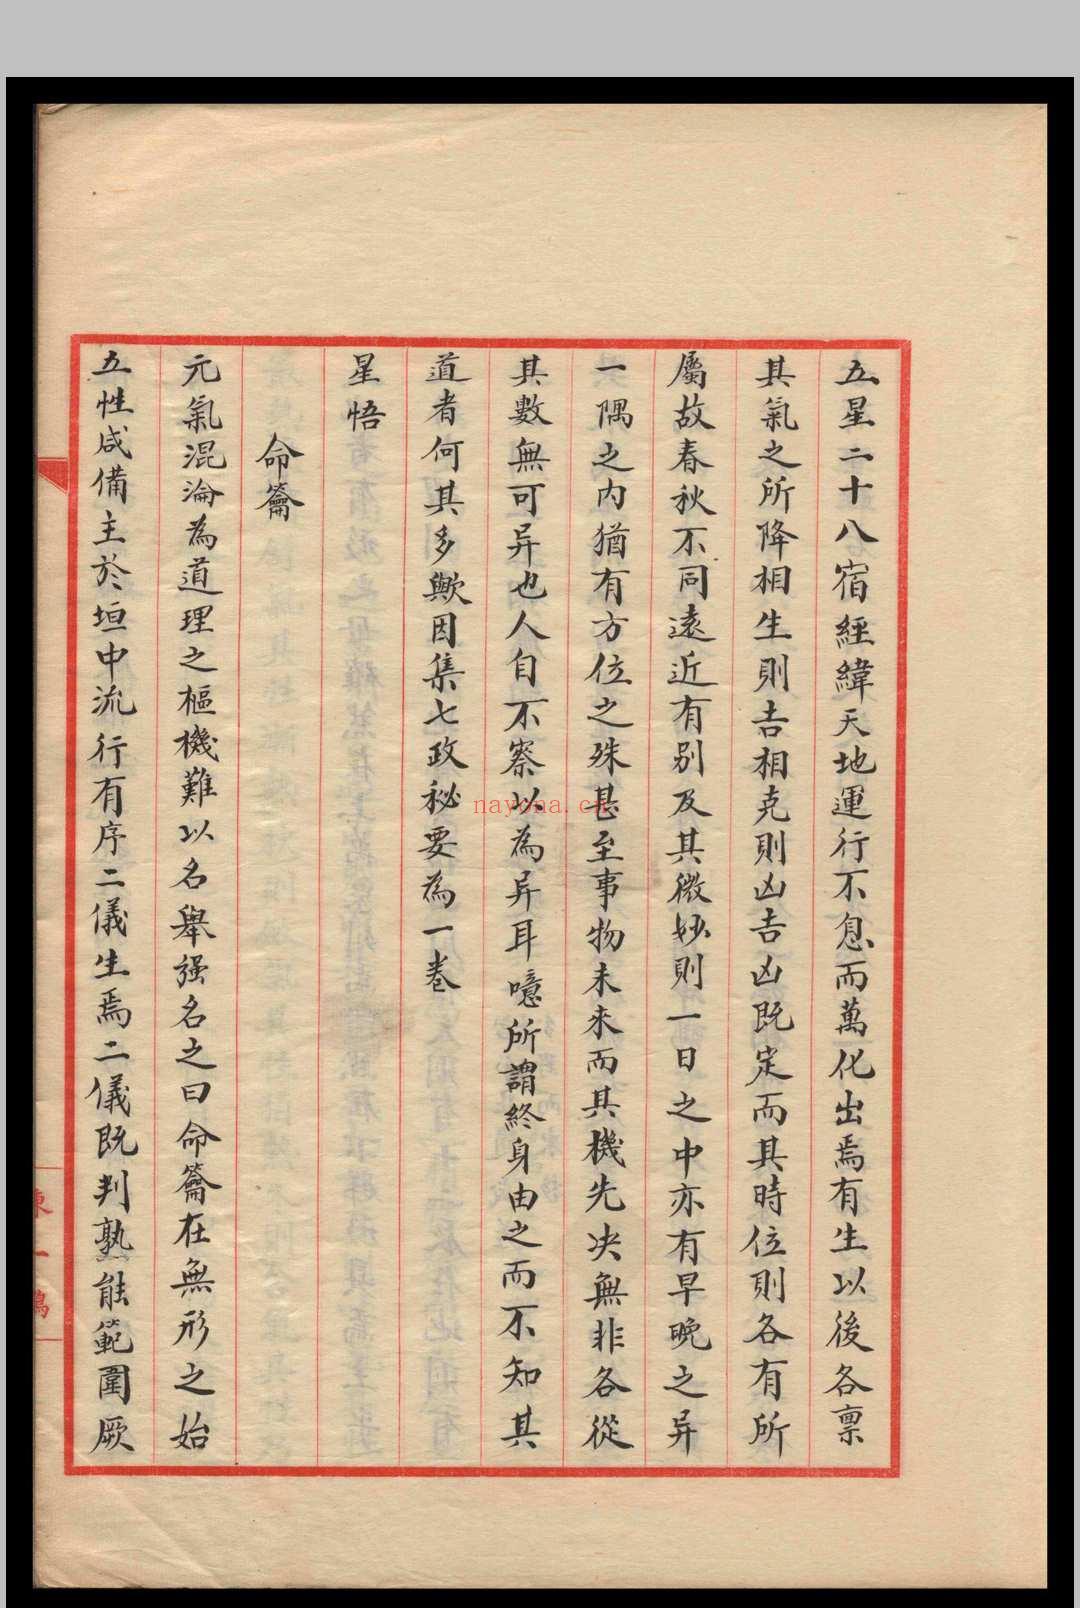 五星二十八宿經緯天地運行不息而萬化出焉有生以後各禀
其氣之所降相生則吉相克則凶吉凶既定而其時位則各有所
屬故春秋不同遠近有别及其微妙則一日之中亦有早晚之异
一隅之内猶有方位之殊甚至事物未來而其機先决無非各從
其數無可异也人自不察以為异耳噫所謂終身由之而不知其
道者何其多歟因集七政秘要為一卷
星悟
命籥
元氣混淪為道理之樞機難以名舉强名之曰命籥在無形之始
五性咸備主於垣中流行有序二儀生焉二儀既判孰能範圍厥
nayona.cn